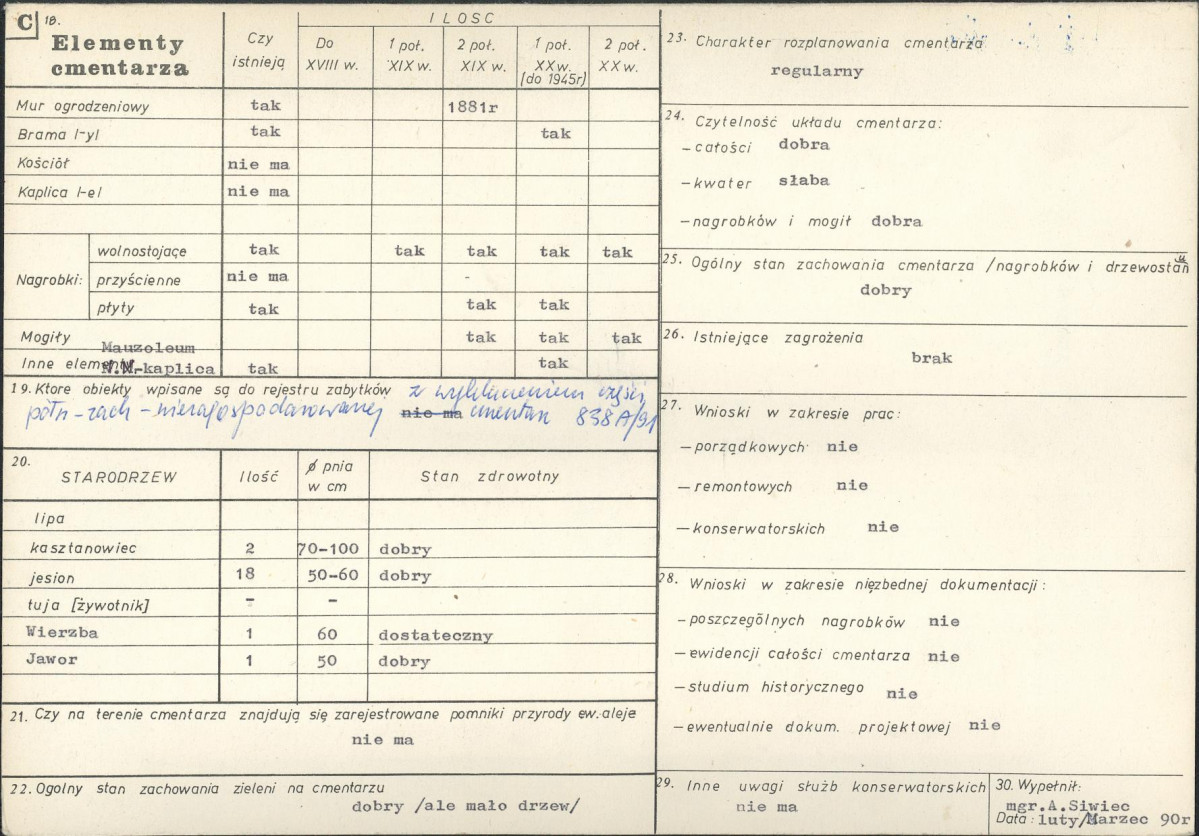 C 18.
Elementy cmentarza
Czy istnieją
ILOŚĆ
Do XVIII w.
1 poł. XIX w.
2 poł. XIX w.
1 poł. XX w. (do 1945r)
2 poł. XX w.
Mur ogrodzeniowy tak 1881r
Brama /-y/ tak tak
Kościół nie ma
Kaplica /-e/ nie ma
Nagrobki:
wolnostojące tak tak tak tak tak
przyścienne nie ma -
płyty tak tak tak
Mogiły tak tak tak
Mauzoleum
Inne elementy N.N.-kaplica tak tak
19. Ktore obiekty wpisane są do rejestru zabytków z wyłączeniem części
półn-zach-niezagospodarowanej nie ma cmentarz 838A/91
20.
STARODRZEW Ilość ø pnia w cm Stan zdrowotny
lipa
kasztanowiec 2 70-100 dobry
jesion 18 50-60 dobry
tuja [żywotnik] - -
Wierzba 1 60 dostateczny
Jawor 1 50 dobry
21. Czy na terenie cmentarza znajdują się zarejestrowane pomniki przyrody ew. aleje
nie ma
22. Ogolny stan zachowania zieleni na cmentarzu
dobry /ale mało drzew/
23. Charakter rozplanowania cmentarza
regularny
24. Czytelność układu cmentarza:
-całości dobra
-kwater słaba
-nagrobków i mogił dobra
25. Ogólny stan zachowania cmentarza /nagrobków i drzewostanu
dobry
26. Istniejące zagrożenia
brak
27. Wnioski w zakresie prac:
-porządkowych nie
-remontowych nie
-konserwatorskich nie
28. Wnioski w zakresie nięzbednej dokumentacji:
-poszczególnych nagrobków nie
-ewidencji całości cmentarza nie
-studium historycznego nie
-ewentualnie dokum. projektowej nie
29. Inne uwagi służb konserwatorskich
nie ma
30. Wypełnił:
mgr.A.Siwiec
Data: luty/Marzec 90r